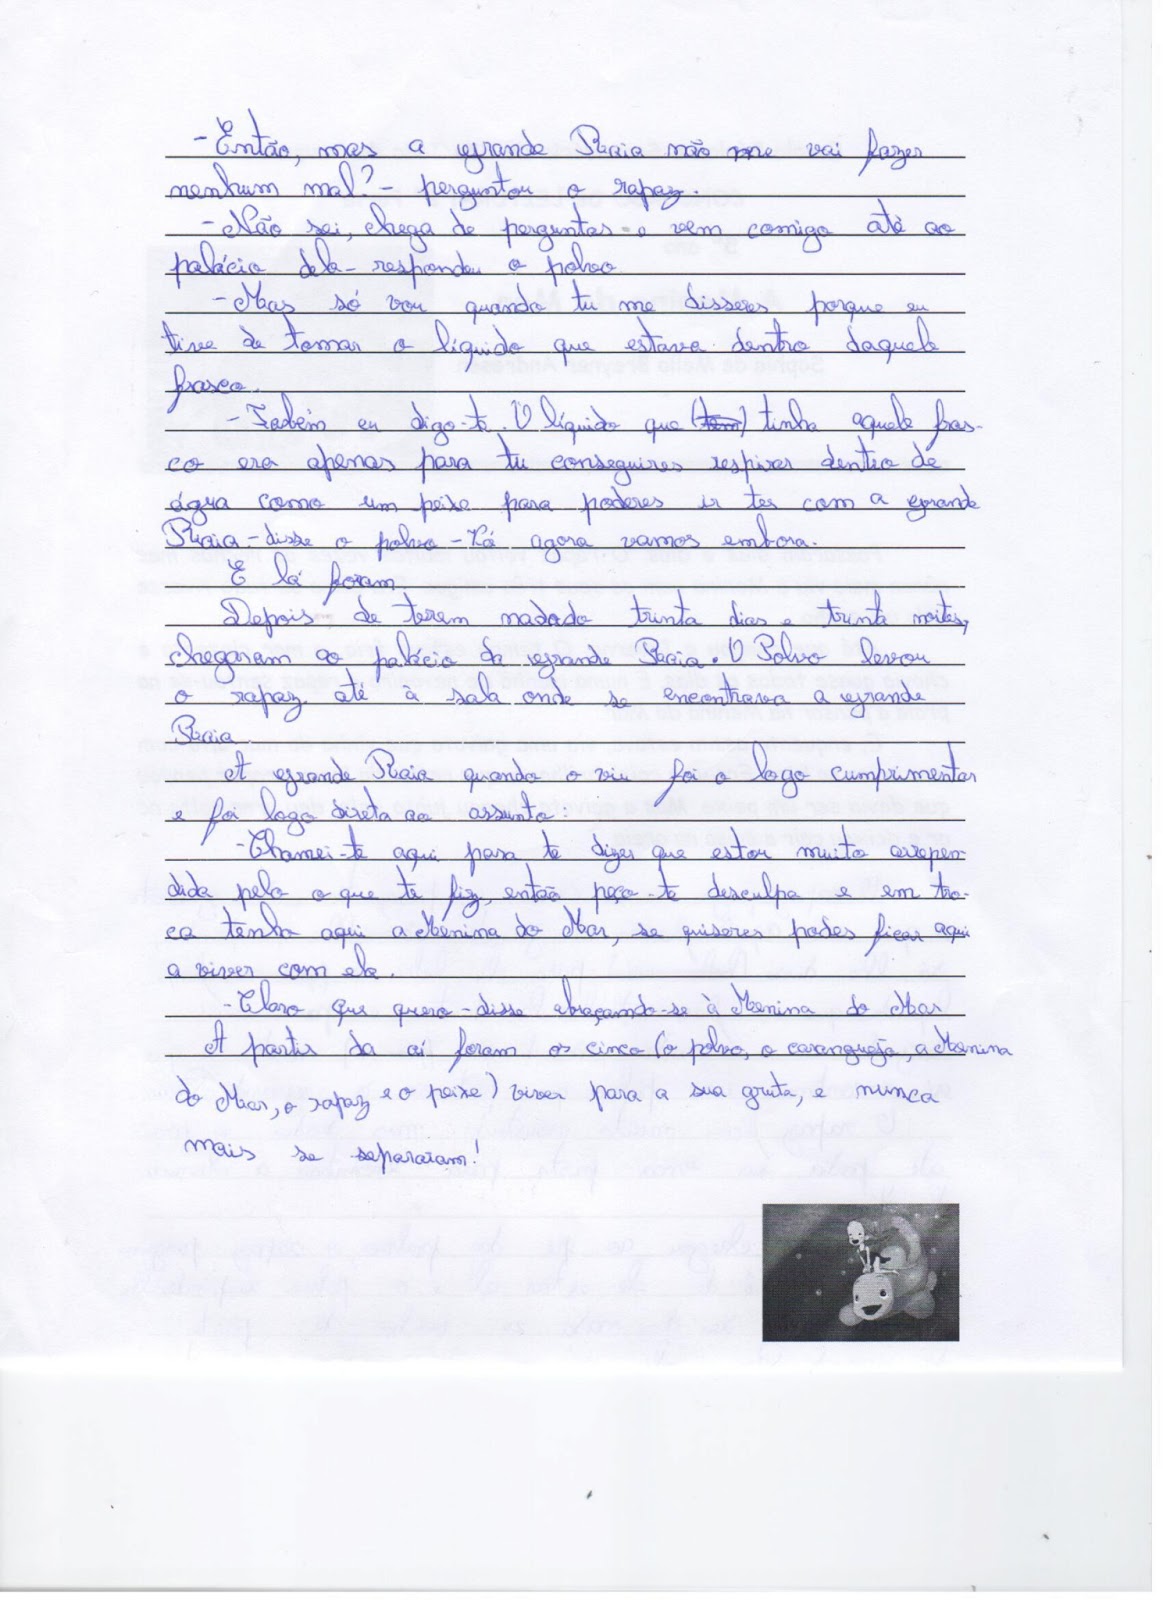 - Então, mas a grande Raia não me vai fazer
nenhum mal? - perguntou o rapaz.
- Não sei, chega de perguntas e vem comigo até ao
palácio dela - respondeu o polvo.
- Mas só vou quando tu me disseres porque eu
tive de tomar o líquido que estava dentro daquele
frasco.
- Também eu digo-te. O líquido que (tem) tinha aquele fras-
co era apenas para tu conseguires respirar dentro de
água como um peixe para poderes ir ter com a grande
Raia - disse o polvo - Lá agora vamos embora.
E lá foram.
Depois de terem nadado trinta dias e trinta noites,
chegaram ao palácio da grande Raia. O Polvo levou
o rapaz até à sala onde se encontrava a grande
Raia.
A grande Raia quando o viu foi o logo cumprimentar
e foi logo direta ao assunto:
- Chamei-te aqui para te dizer que estou muito arrepen
dida pelo o que te fiz, então peço-te desculpa e em tro-
ca tenho aqui a Menina do Mar, se quiseres podes ficar aqui
a viver com ela.
- Claro que quero - disse abraçando-se à Menina do Mar
A partir da aí foram os cinco (o polvo, o caranguejo, a Menina
do Mar, o rapaz e o peixe) viver para a sua gruta, e nunca
mais se separaram!